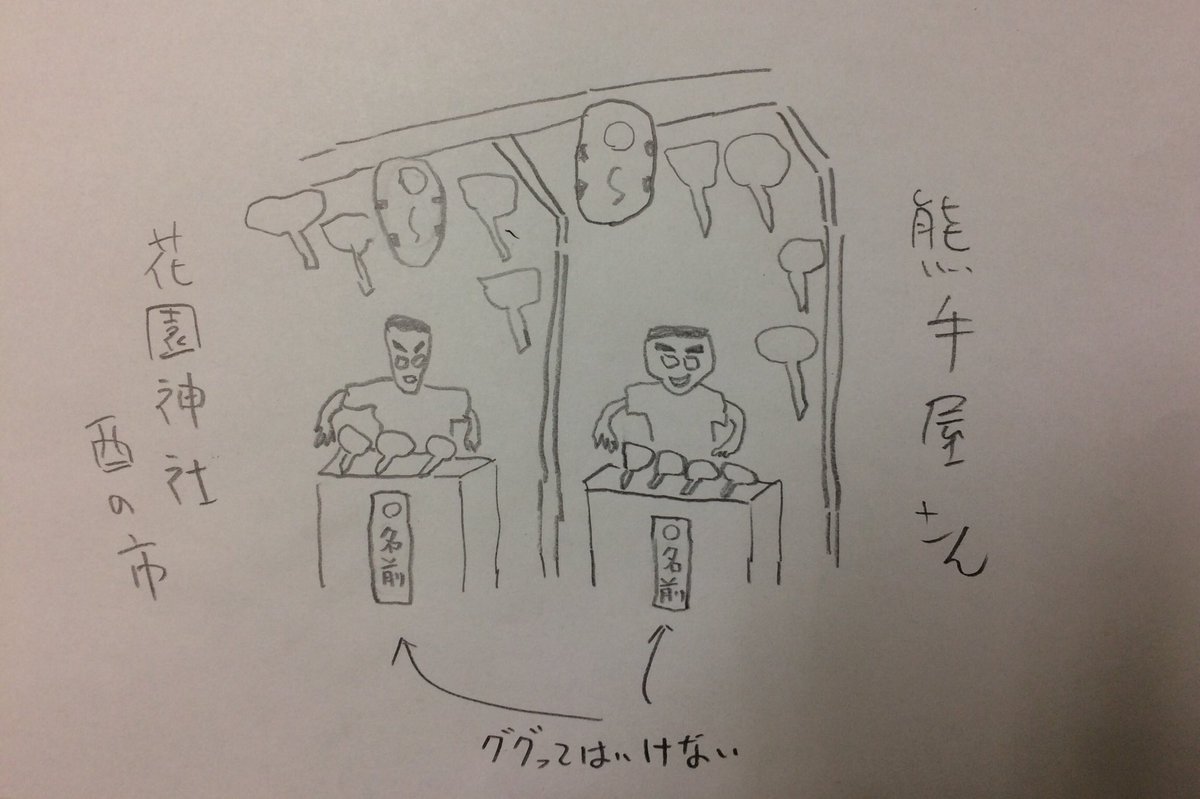 熊手屋さん
花園神社
酉の市
○名前
○名前
ググってはいけない